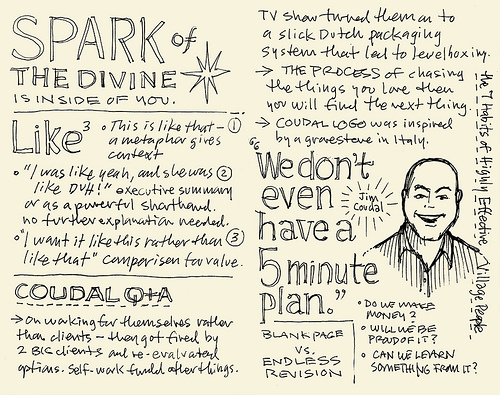 SPARK of
THE DIVINE
IS INSIDE OF YOU.
Like³
• This is like that – ①
a metaphor gives
context
• "I was like yeah, and she was ②
like DUH!" executive summary
or as a powerful shorthand.
no further explanation needed.
• "I want it like this rather than ③
like that" comparison for value.
COUDAL Q+A
→ On working for themselves rather
than clients – then got fired by
2 BIG clients and re-evaluated
options. Self-work fund other things.
TV show turned them on to
a slick Dutch packaging
system that led to levelboxing.
→ THE PROCESS of chasing
the things you love then
you will find the next thing.
→ COUDAL LOGO was inspired
by a gravestone in Italy.
"We don't
even
have a
5 minute
plan."
Jim
Coudal
BLANK PAGE
VS.
ENDLESS
REVISION
• DO WE MAKE
MONEY?
• WILL WE BE
PROUD OF IT?
• CAN WE LEARN
SOMETHING FROM IT?
the 7 Habits of Highly Effective Village People